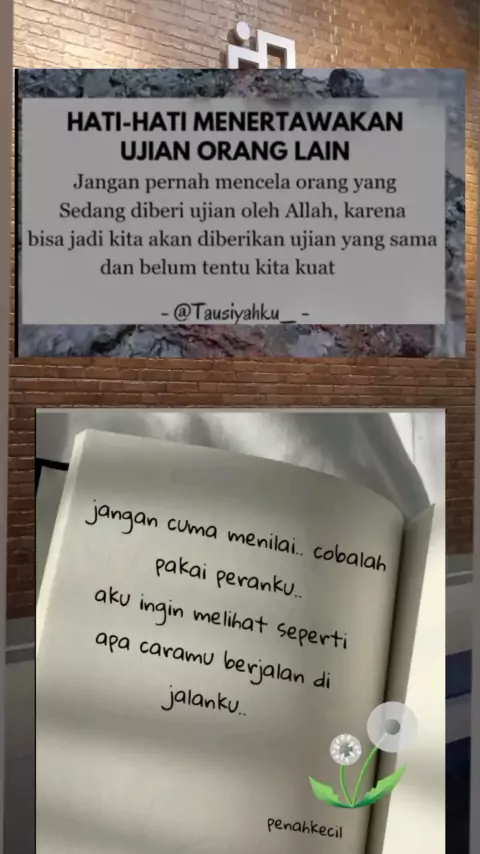 HATI-HATI MENERTAWAKAN
UJIAN ORANG LAIN
Jangan pernah mencela orang yang
Sedang diberi ujian oleh Allah, karena
bisa jadi kita akan diberikan ujian yang sama
dan belum tentu kita kuat
- @Tausiyahku_ -
jangan cuma menilai.. cobalah
pakai peranku..
aku ingin melihat seperti
apa caramu berjalan di
jalanku..
penahkecil